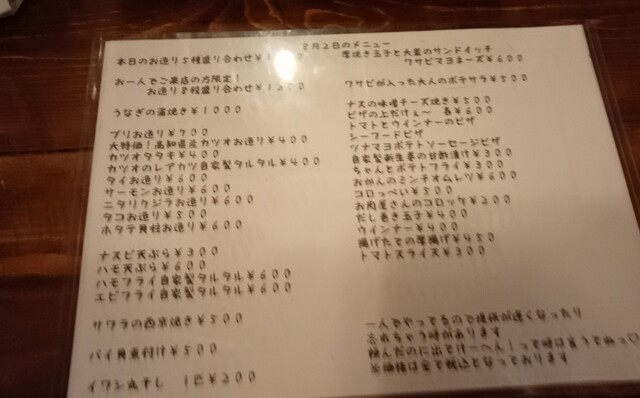 8月2日のメニュー
本日のお造り5種盛り合わせ
お一人でご来店の方限定!
お造り 種盛り合わせ¥1200
うなぎの蒲焼き¥1000
ブリお造り¥700
大特価!高知県産カツオお造り¥400
カツオタタキ¥400
カツオのレアカツ自家製タルタル¥400
タイお造り¥600
サーモンお造り¥600
ニタリクジラお造り¥600
タコお造り¥500
ホタテ貝柱お造り¥600
ナスビ天ぷら¥300
ハモ天ぷら¥600
ハモフライ自家製タルタル¥600
エビフライ自家製タルタル¥600
サワラの西京焼き¥500
バイ貝煮付け¥500
イワシ丸干し 1匹¥200
厚焼き玉子と大葉のサンドイッチ
ワサビマヨネーズ¥600
ワサビが入った大人のポテサラ¥500
ナスの味噌チーズ焼き¥500
ピザの上だけ&〜 各¥600
トマトとウインナーのピザ
シーフードピザ
ツナマヨポテトソーセージピザ
自家製新生姜の甘酢漬け¥300
ちゃんとポテトフライ¥300
おかんのミンチオムレツ¥600
コロっぺい¥500
お肉屋さんのコロッケ¥200
だし巻き玉子¥400
ウインナー¥400
揚げたての厚揚げ¥450
トマトスライス¥300
一人でやってるので提供が遅くなったり
忘れちゃう時があります
頼んだのに出てけーへん!って時は言うてねっ♡
※価格は全て税込となっております